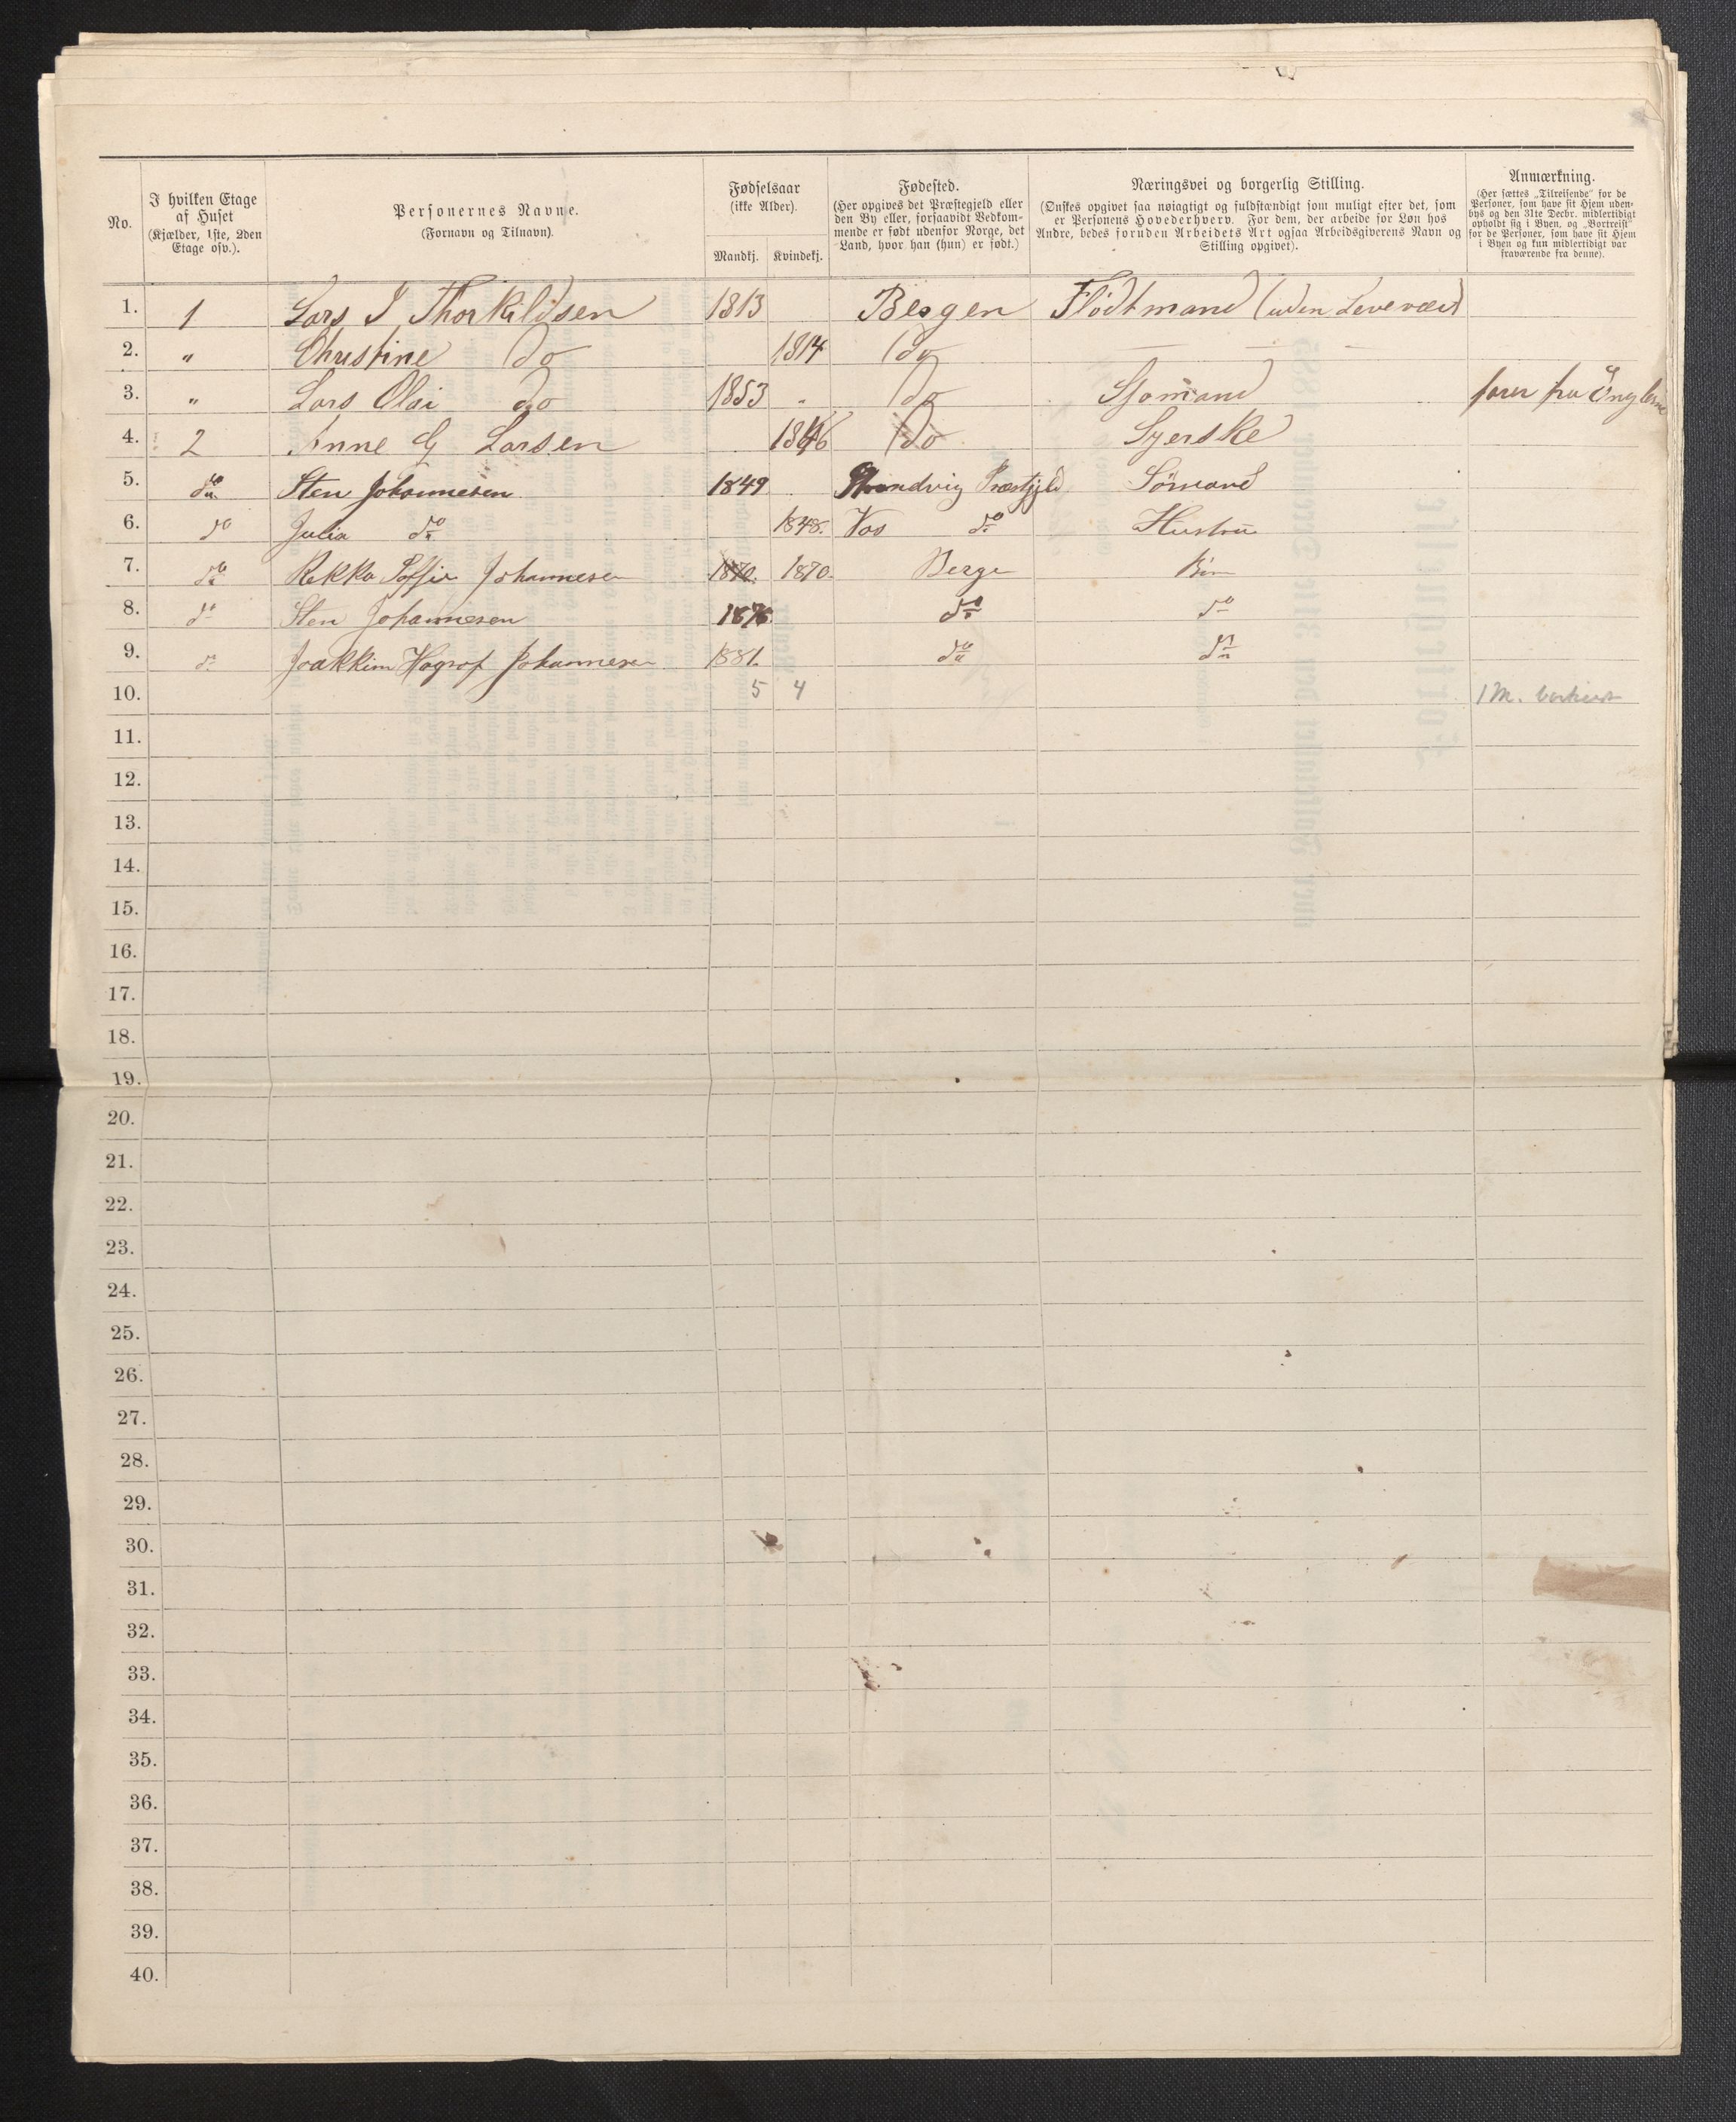 No.
I hvilken Etage af Huset (Kjælder, 1ste, 2den Etage osv.).
Personernes Navne. (Fornavn og Tilnavn).
Fødselsaar (ikke Alder).
Mandkj. Kvindekj.
Fødested. (Her opgives det Præstegjeld eller den By eller, forsaavidt Vedkommende er født udenfor Norge, det Land, hvor han (hun) er født.)
Næringsvei og borgerlig Stilling. (Ønskes opgivet saa nøiagtigt og fuldstændigt som muligt efter det, som er Personens Hovederhverv. For dem, der arbeide for Løn hos Andre, bedes foruden Arbeidets Art ogsaa Arbeidsgiverens Navn og Stilling opgivet).
Anmærkning. (Her sættes „Tilreisende" for de Personer, som have sit Hjem udenbys og den 31te Decbr. midlertidigt opholdt sig i Byen, og „Bortreist" for de Personer, som have sit Hjem i Byen og kun midlertidigt var fraværende fra denne).
1. 1 Lars I Thorkildsen 1813 Bergen Flödtmand (uden Levevæi)
2. " Christine do 1814 do — — —
3. " Lars Olai do 1853 " do Sjømand farer fra
4. 2 Anne G Larsen 1846 do Syerske
5. do Sten Johannesen 1849 Strandvig Præstgjeld Sömand
6. do Julia do 1848. Vos do Hustru
7. do Rekka Johannesen 1870. 1870. Berge
8. do Sten Johannesen 1876. do do
9. do Joakkim Johannesen 1881. do do
10. 5 4 1 M.
11.
12.
13.
14.
15.
16.
17.
18.
19.
20.
21.
22.
23.
24.
25.
26.
27.
28.
29.
30.
31.
32.
33.
34.
35.
36.
37.
38.
39.
40.